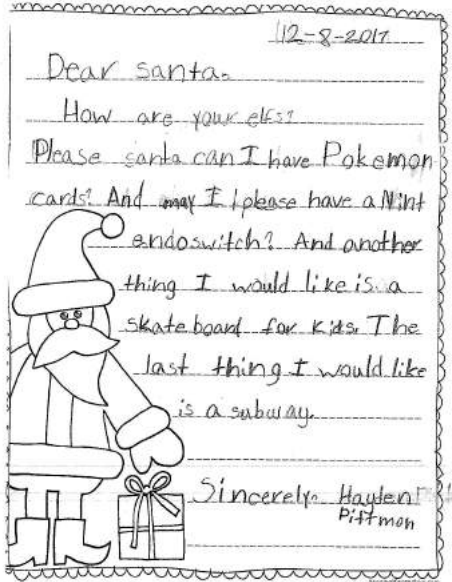 12-8-2017
Dear santa.
How are your elfs?
Please santa can I have Pokemon
cards? And may I please have a Nint
endoswitch? And another
thing I would like is a
skate board for kids. The
last thing I would like
is a subway.
Sincerely. Hayden
Pittmon